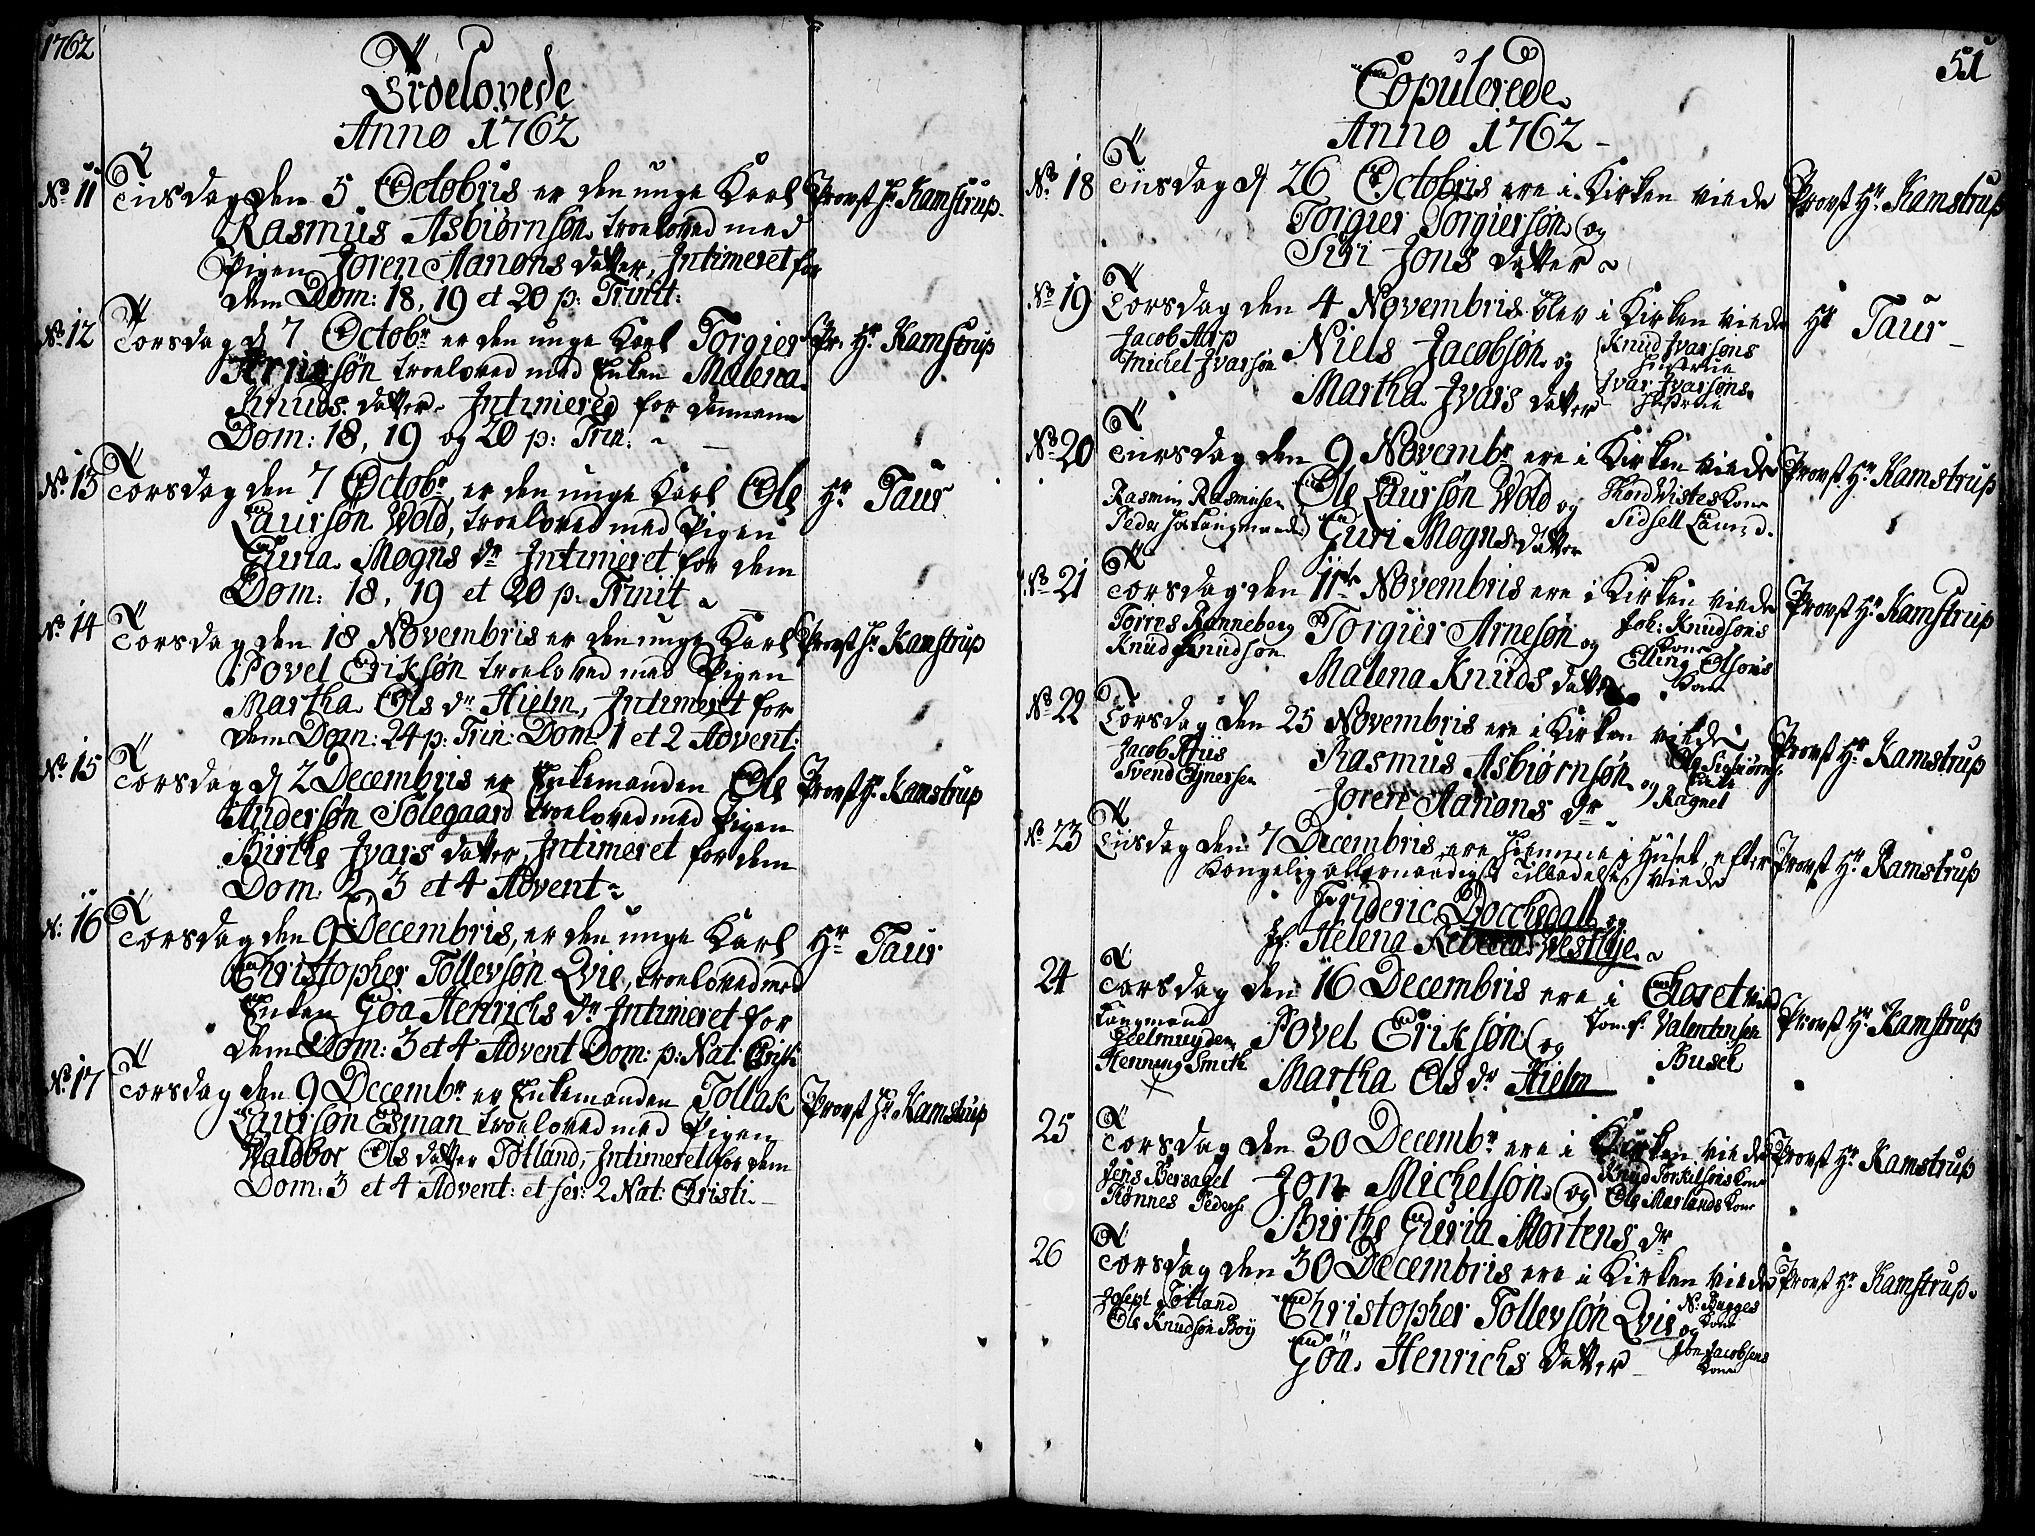 1762
Troelovede
Anno 1762
No 11 Tirsdag den 5 Octobris er den unge Karl Provst Hr Kamstrup.
Rasmus Asbiørnsøn troelowed med
Pigen Joren Aanons datter, Intimeret for
dem Dom: 18, 19 et 20 p: Trinit:
No 12 Torsdag d 7 Octobr er den unge Karl Torgier Pr. Hr. Kamstrup
Arnesøn troelowed med Enken Malena
Knuds datter. Intimered for dennem
Dom: 18, 19 og 20 p: Trin: ~
No 13 Torsdag den 7 Octobr, er den unge Karl Ole Hr Taur
Laursøn Wold, troelowed med Pigen
Guria Mogns dr Intimeret for dem
Dom: 18, 19 et 20 p: Trinit ~
No 14 Torsdag den 18 Novembris er den unge Karl Provst Hr Kamstrup
Povel Eriksøn troelowed med Pigen
Martha Ols dr Hielm, Intimeret for
dem Dom: 24 p: Trin: Dom 1 et 2 Advent:
No 15 Torsdag d 2 Decembris er Enkemanden Ole Provst Hr. Kamstrup
Andersøn Sølegaard troelowed med Pigen
Birthe Ivars datter, Intimeret for dem
Dom: 2, 3 et 4 Advent ~
N: 16 Torsdag den 9 Decembris, er den unge Karl Hr Taur
Christopher Tollevsøn Qvie, troelowed med
Enken Gøa Henrichs dr Intimeret for
dem Dom: 3 et 4 Advent Dom: p: Nat: Christi
No 17 Torsdag den 9 Decembr er Enkemanden Tollak Provst Hr Kamstrup
Laursøn Esman troelowed med Pigen
Waldbor Ols datter Tøtland, Intimeret for dem
Dom: 3 et 4 Advent: et fer: 2 Nat: Christi. —
51
Copulerede
Anno 1762 -
No 18 Tiisdag d 26 Octobris ere i Kirken viede Provst Hr. Kamstrup
Torgier Torgiersøn og
Siri Jons datter ~
No 19 Torsdag den 4 Novembris blev i Kirken viede Hr Taur -
Jacob Aarp
Michel Ivarsøn
Niels Jacobsøn og
Martha Ivars datter
Knud Ivarsøns
Hustrue
Ivar Ivarsøns
Hustrue
No 20 Tiirsdag den 9 Novembr ere i Kirken viede Provst Hr. Kamstrup
Rasmus Rasmusen
Ole Laursøn Wold og
Guri Mogns datter
Thord Wistes Kone
Sidsell Laur: d.
No 21 Torsdag den 11te Novembris ere i Kirken viede Provst Hr. Kamstrup
Torres Ranneberg
Knud Knudsøn
Torgier Arnesøn og
Malena Knuds datter
Joh: Knudsøns
Kone
Elling Olsøns
Kone
No 22 Torsdag den 25 Novembris ere i Kirken viede Provst Hr Kamstrup
Jacob Friis
Svend Ejnersen
Rasmus Asbiørnsøn og
Joren Aanons dr ~
Enke
Ragnel
No 23 Tiisdag den 7 Decembris, ere hiemme i Huset, efter Provst Hr Kamstrup
Kongelig allernaadigst Tilladelse viede
Frideric Bocchsdall og
Jf: Helena Rebecca Westlye. ~
24 Torsdag den 16 Decembris ere i Choret viede Provst Hr. Kamstrup
Kaapmand
Eelmuyden
Henning Smith
Povel Eriksøn og
Martha Ols dr Hielm
Jomf: Valentinsen
Busch
25 Torsdag den 30 Decembr ere i Kirken viede Provst Hr Kamstrup
Jens Bersagel
Rønnes Peders:
Jon Michelsøn og
Birthe Guria Mortens dr
Knud Torkilsøns Kone
Ole Marlands Kone
26 Torsdag den 30 Decembris ere i Kirken viede Provst Hr Kamstrup.
Joseph Tøtland
Ole Knudsøn Boy
Christopher Tollevsøn Qvie og
Gøa Henrichs datter -
N: Bugges
Kone
Jacobsens
Kone